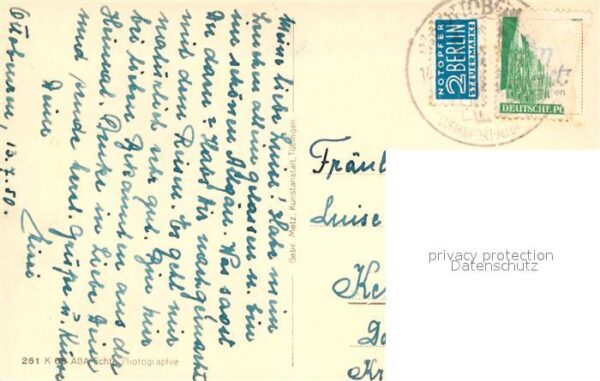 Ottobeuren, 13.7.50.
Meine liebe Luise! Habe mein
Lenchen allein gelassen u. bin
im schönen Allgäu. Was sagst
Du dazu? Hast Du nachgemacht
mit dem Reisen. Es geht mir
natürlich sehr gut. Bin hier
bei lieben Bekannten aus der
Heimat. Denke in Liebe Dein
und sende herzl. Grüße u. Küsse
Deine
Gebr. Metz, Kunstanstalt, Tübingen
261 K 68 ABA Echte Photographie
NOTOPFER
2 BERLIN
STEUERMARKE
DEUTSCHE PO
LUFTKURORT
Fräul
Luise
Ke
Kr
privacy protection
Datenschutz